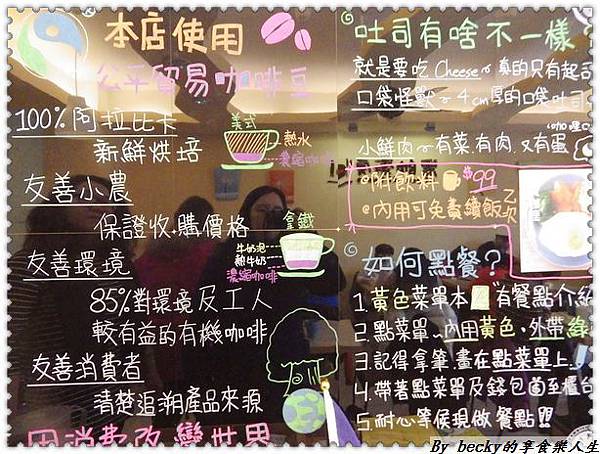 本店使用
公平貿易咖啡豆
100%阿拉比卡
新鮮烘培
美式
熱水
濃縮咖啡
友善小農
保證收購價格
拿鐵
牛奶泡
熱牛奶
濃縮咖啡
友善環境
85%對環境及工人
較有益的有機咖啡
友善消費者
清楚追溯產品來源
因消費改變世界
吐司有啥不一樣
就是要吃Cheese~真的只有起司
口袋怪獸~4cm厚的口袋吐司
小鮮肉~有菜,有肉,又有蛋
@附飲料 $99
@內用可免費續飯乙次
如何點餐?
1.黃色菜單本 有餐點介紹
2.點菜單~內用黃色,外帶綠
3.記得拿筆畫在點菜單上
4.帶著點菜單及錢包首至櫃台
5.耐心等候現做餐點!!
By becky的享食樂人生